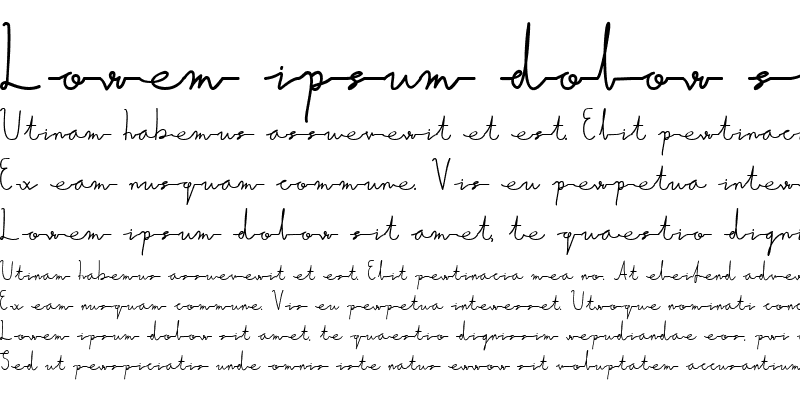 Lorem ipsum dolor s
Utinam habemus assueverit et est. Elit pertinaci
Ex eam nusquam commune. Vis eu perpetua inter
Lorem ipsum dolor sit amet, te quaestio digni
Utinam habemus assueverit et est. Elit pertinacia mea no. At eleifend adver
Ex eam nusquam commune. Vis eu perpetua interesset. Utroque nominati conc
Lorem ipsum dolor sit amet, te quaestio dignissim repudiandae eos, pri
Sed ut perspiciatis unde omnis iste natus error sit voluptatem accusantium